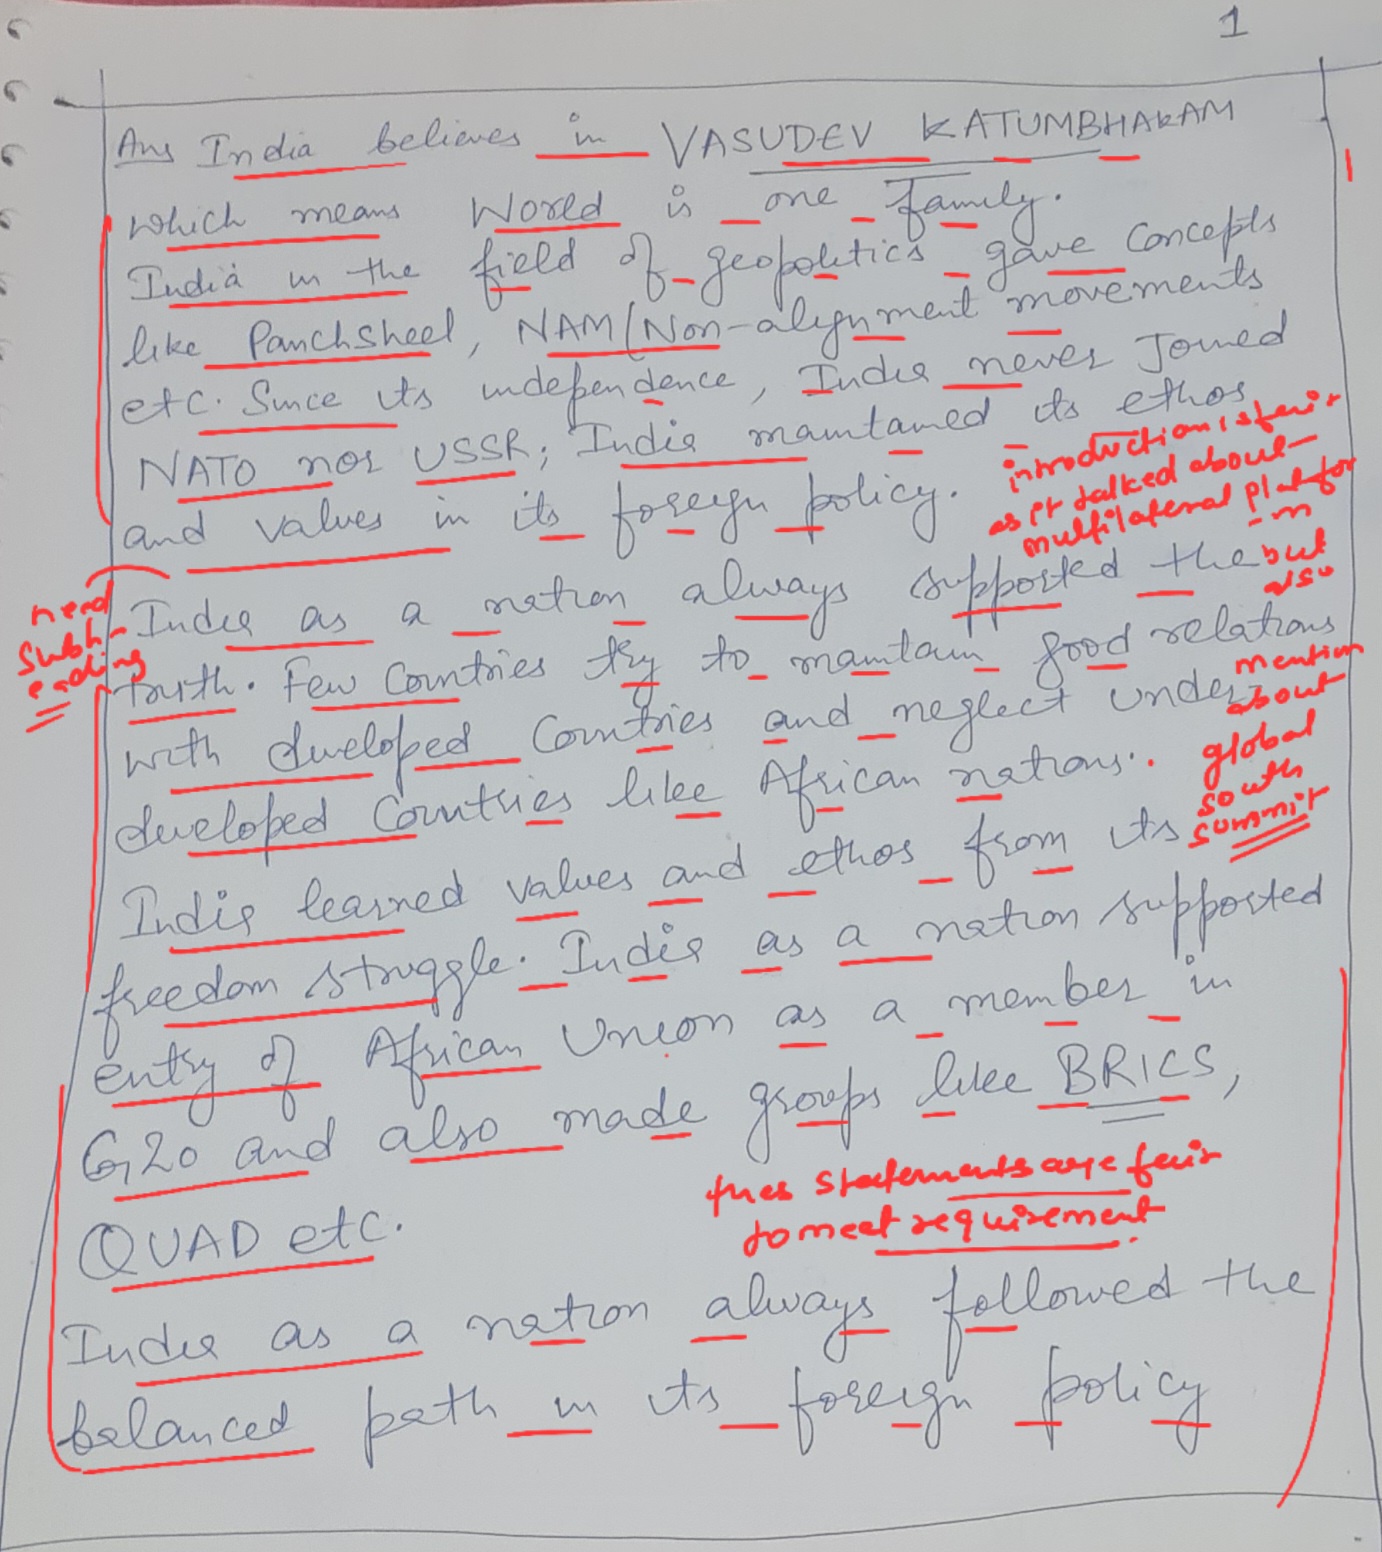 1
Ans India believes in VASUDEV KATUMBHAKAM
which means World is one family.
India in the field of geopolitics gave concepts
like Panchsheel, NAM (Non-alignment movements
etc. Since its independence, India never Joined
NATO nor USSR; India maintained its ethos
and values in its foreign policy.
introduction is fair
as it talked about
multilateral platfor
-m
but
also
mention
about
global
south
summit
need
subh-
eading
India as a nation always supported the
truth. Few Countries try to maintain good relations
with developed Countries and neglect under-
developed Countries like African nations.
India learned values and ethos from its
freedom struggle. India as a nation supported
entry of African Union as a member in
G20 and also made groups like BRICS,
QUAD etc.
thes statements are fair
to meet requirement
India as a nation always followed the
balanced path in its foreign policy